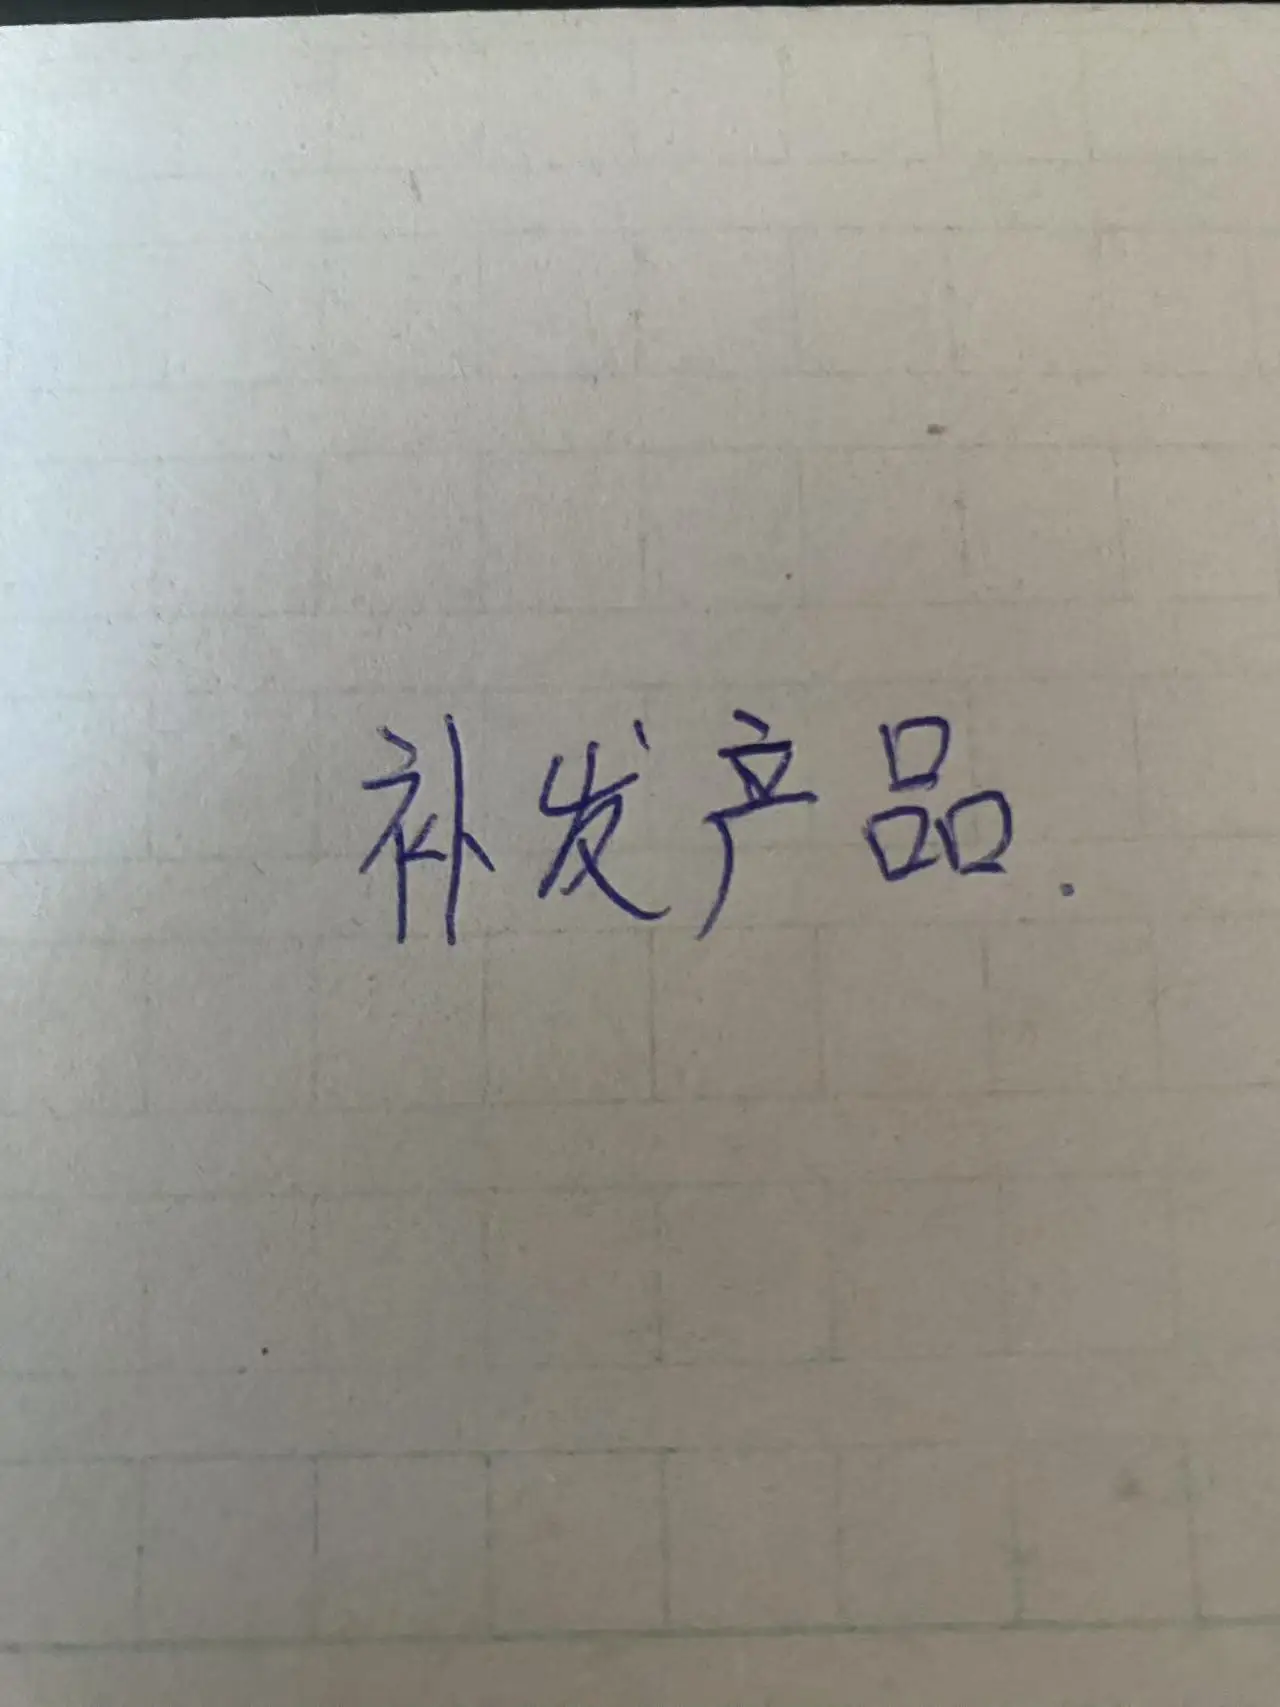 补发产品.